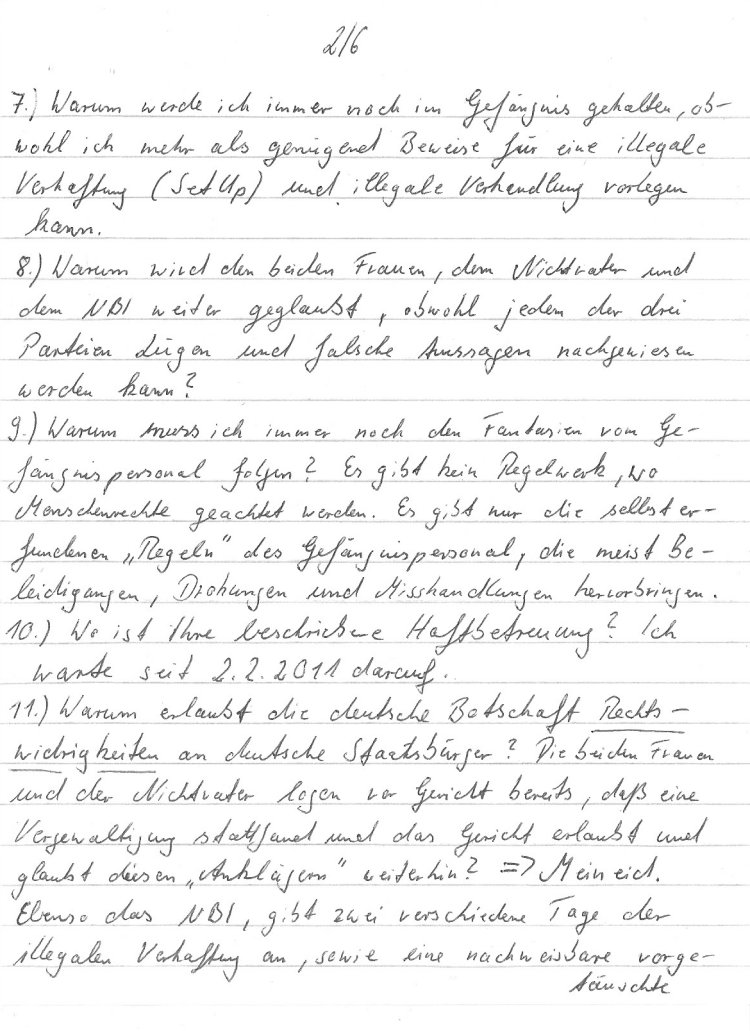 2/6
7.) Warum werde ich immer noch im Gefängnis gehalten, ob-
wohl ich mehr als genügend Beweise für eine illegale
Verhaftung (SetUp) und illegale Verhandlung vorlegen
kann.
8.) Warum wird den beiden Frauen, dem Nichtvater und
dem NBI weiter geglaubt, obwohl jedem der drei
Parteien Lügen und falsche Aussagen nachgewiesen
werden kann?
9.) Warum muss ich immer noch den Fantasien vom Ge-
fängnispersonal folgen? Es gibt kein Regelwerk, wo
Menschenrechte geachtet werden. Es gibt nur die selbst er-
fundenen „Regeln" des Gefängnispersonal, die meist Be-
leidigungen, Drohungen und Misshandlungen hervorbringen.
10.) Wo ist Ihre beschriebene Haftbetreuung? Ich
warte seit 2.2.2011 darauf.
11.) Warum erlaubt die deutsche Botschaft Rechts-
widrigkeiten an deutsche Staatsbürger? Die beiden Frauen
und der Nichtvater logen vor Gericht bereits, daß eine
Vergewaltigung stattfand und das Gericht erlaubt und
glaubt diesen „Anklägern" weiterhin? => Meineid.
Ebenso das NBI, gibt zwei verschiedene Tage der
illegalen Verhaftung an, sowie eine nachweisbare vorge-
täuschte